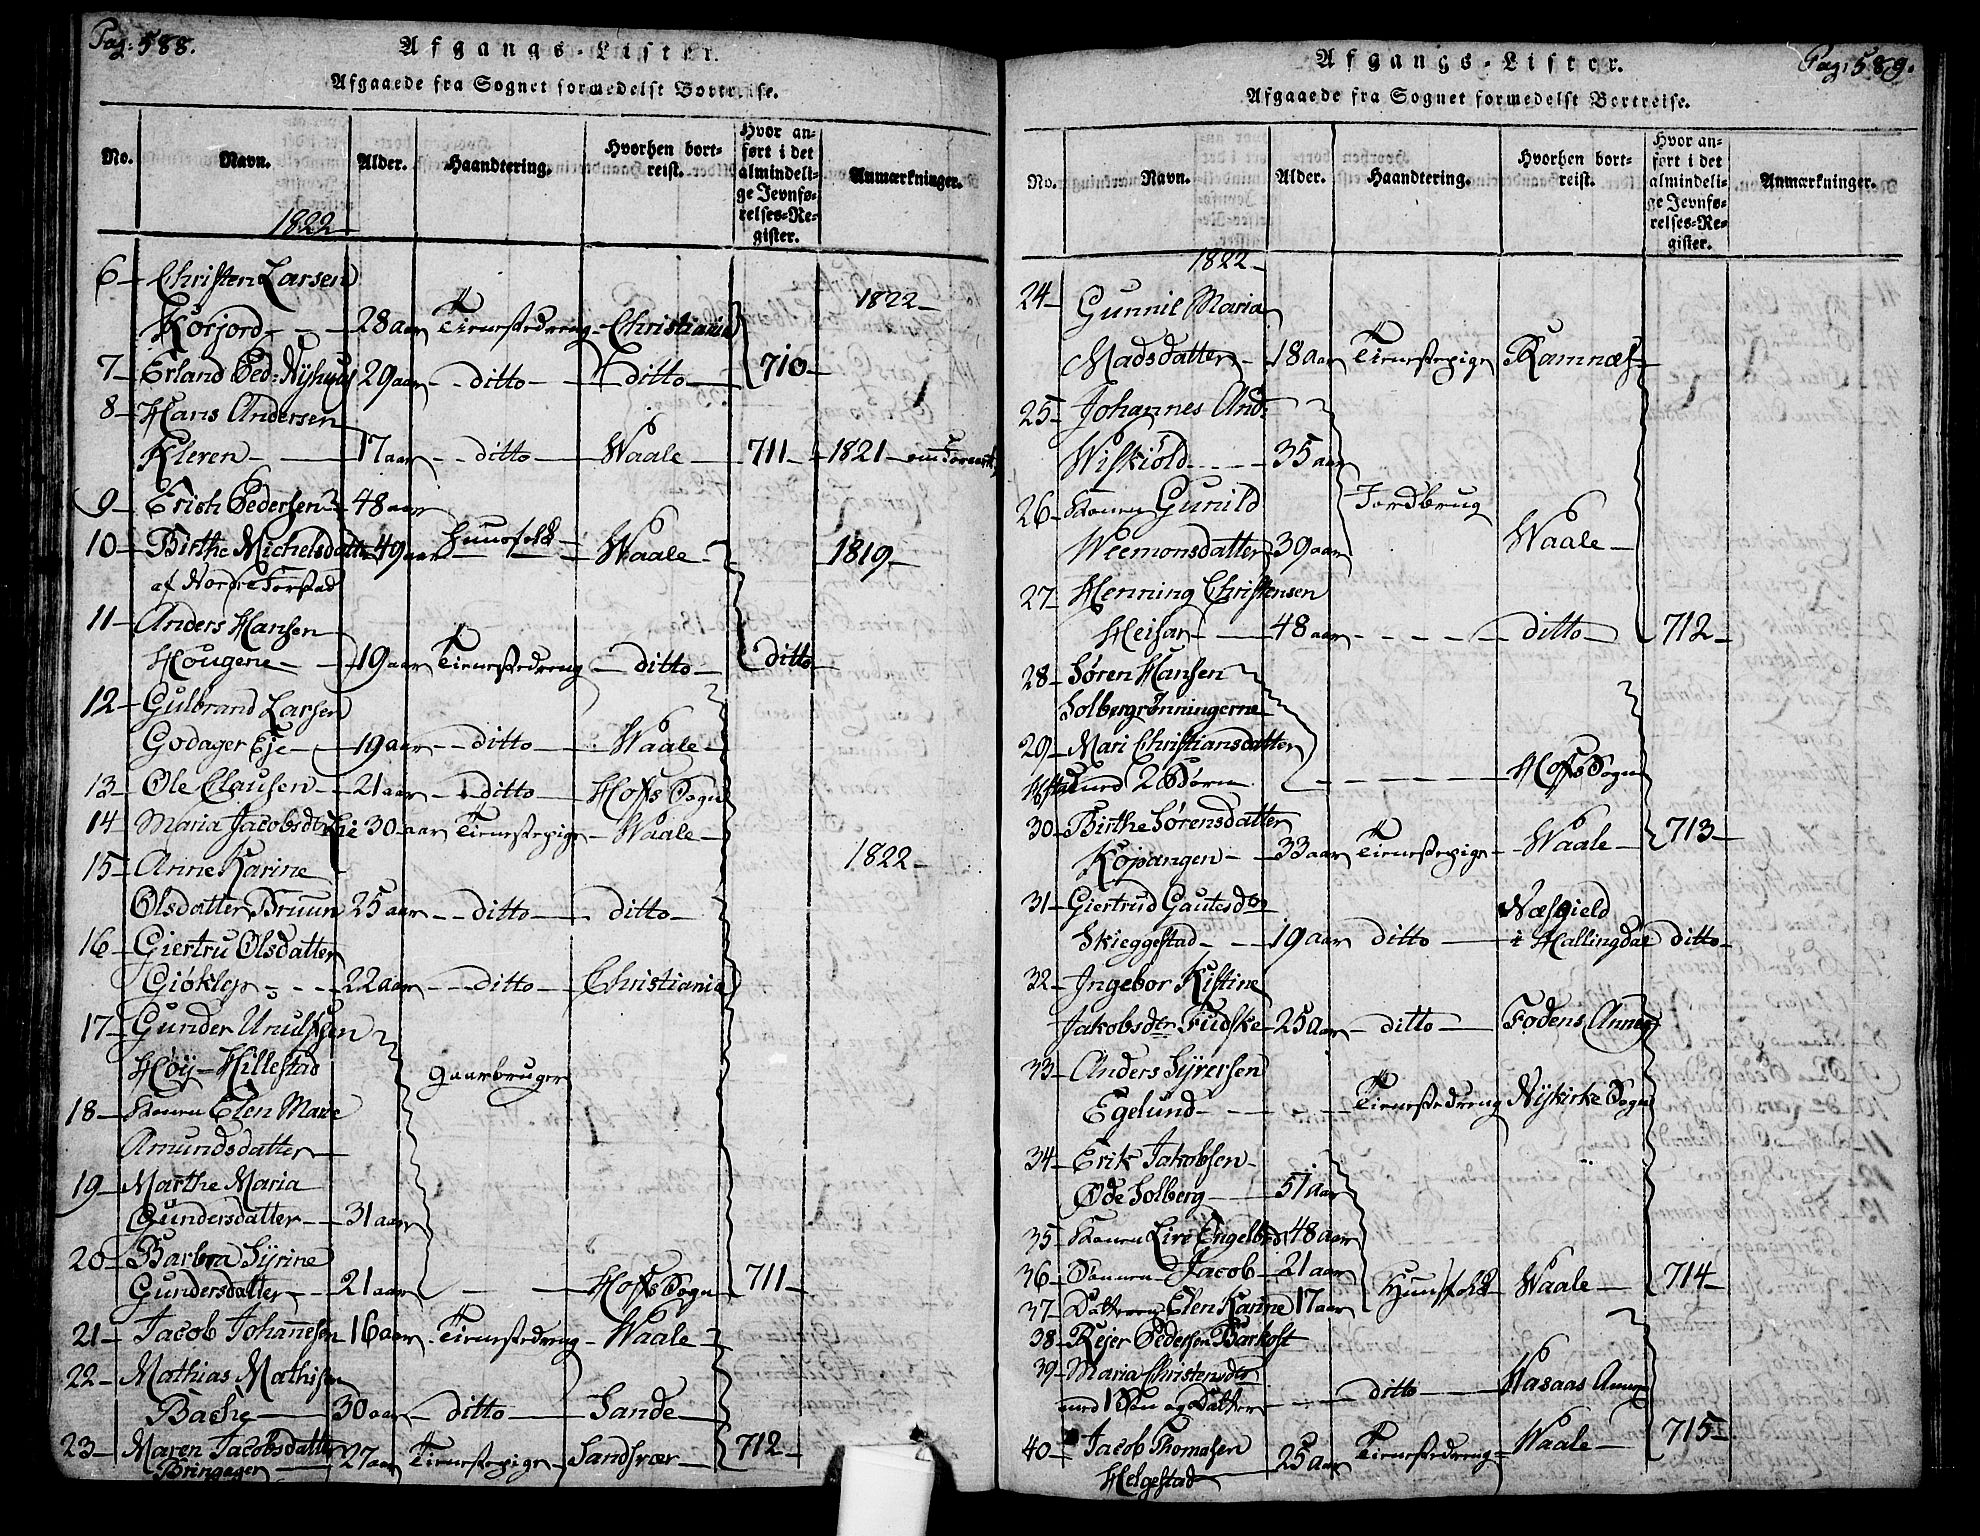 Pag: 588.
Afgangs-Lister.
Afgaaede fra Sognet formedelst Bortreise.
No. Navn. Alder. Haandtering. Hvorhen bortreist. Hvor anført i det almindelige Jevnførelses-Register. Anmærkninger.
1822
6 Christen Larsen 1822
Korjord 28 aar Tienestedreng Christiania
7 Erland Ped: Nÿhuus 29 aar ditto ditto 710
8 Hans Andersen
Kleren 17 aar ditto Waale 711 1821
9 Erich Pedersen 48 aar
10 Birthe Michelsdatter 49 aar Huusfolk Waale 1819
af Nordre Forstad
11 Anders Hansen
Hougene 19 aar Tienestedreng ditto ditto
12 Gulbrand Larsen
Godager Eje 19 aar ditto Waale
13 Ole Clausen 21 aar ditto Hoffs Sogn
14 Maria Jacobsdtr 30 aar Tienestepige Waale
15 Anne Karine 1822
Olsdatter Bruun 25 aar ditto ditto
16 Giertru Olsdatter
Giöklep 22 aar ditto Christiania
17 Gunder Unulfsen
Høy-Hillestad gaarbruger
18 Konen Elen Marie
Amundsdatter
19 Marthe Maria
Gundersdatter 31 aar
20 Barbra Sÿrine
Gundersdatter 21 aar Hoffs Sogn 711
21 Jacob Johannesen 16 aar Tienestedreng Waale
22 Mathias Mathisen
Bache 30 aar ditto Sande
23 Maren Jacobsdatter 27 aar Tienestepige Sandsvær 712
Bringager
Pag: 589.
Afgangs-Lister.
Afgaaede fra Sognet formedelst Bortreise.
No. Navn. Alder. Haandtering. Hvorhen bortreist. Hvor anført i det almindelige Jevnførelses-Register. Anmærkninger.
1822
24 Gunnil Maria
Madsdatter 18 aar Tienestepige Ramnæs
25 Johannes And:
Wiskiöld 35 aar
26 Konen Gunild Jordbrug
Weemonsdatter 39 aar Waale
27 Henning Christensen
Heisar 48 aar ditto 712
28 Søren Hansen
Solbergrønningerne
29 Mari Christiansdatter
med 2 Børn Hoffs Sogn
30 Birthe Sørensdatter
Kopangen 33 aar Tienestepige Waale 713
31 Giertrud Gautesdtr Næsgield
Skieggestad 19 aar ditto i Hallingdal ditto
32 Ingebor Kistine
Jakobsdtr Fudske 25 aar ditto Fodens Annex
33 Anders Sÿversen
Egelund Tienestedreng Nÿkirke Sogn
34 Erik Jakobsen
Øde Solberg 51 aar
35 Konen Live Engelbrd 48 aar
36 Sønnen Jacob 21 aar Huusfolk Waale 714
37 Datteren Elen Karine 17 aar
38 Rejer Pedersen Barkost
39 Maria Christensdtr
med 1 Søn og Datter ditto Hasaas Annex
40 Jacob Thomasen 25 aar Tienestedreng Waale 715
Helgestad